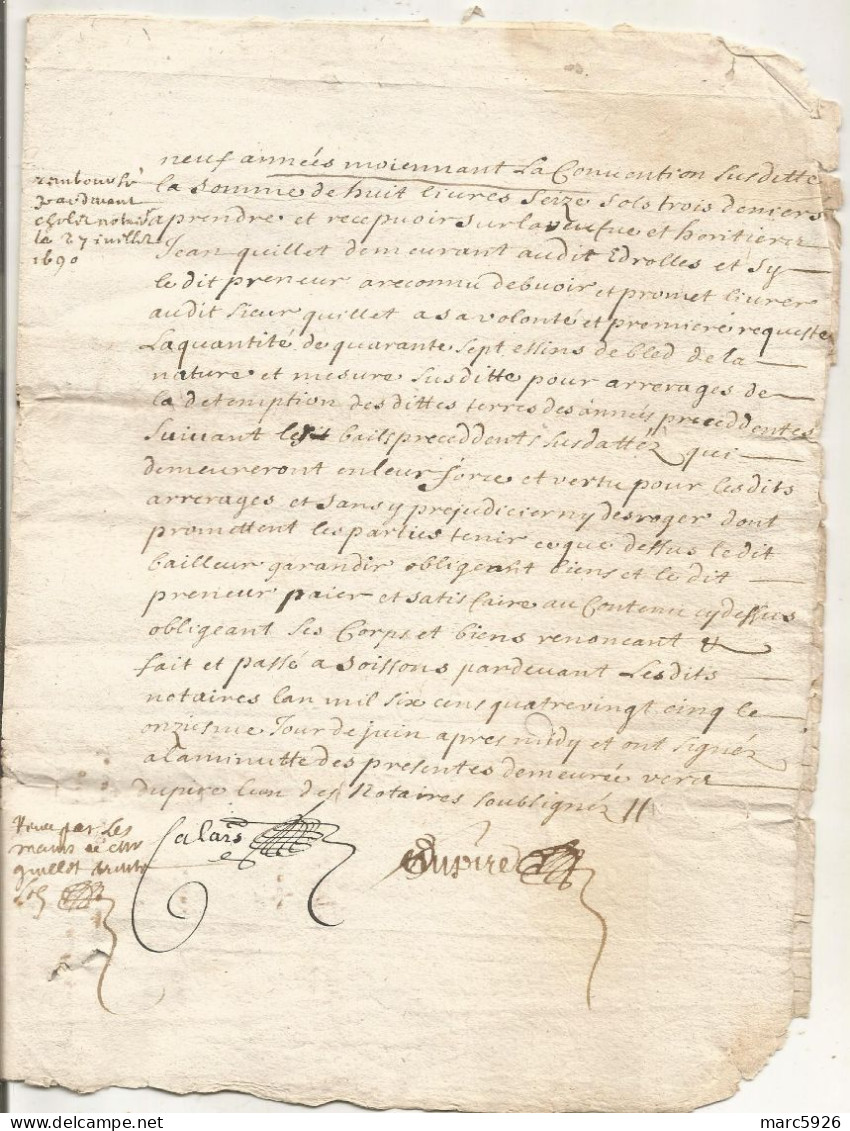 neuf années moiennant La Convention susditte
la somme de huit livres seize sols trois deniers
a prendre et recepuoir sur la veufve et heritiers
Jean quillet demeurant audit Edrolles et sy
le dit preneur a reconnu debuoir et promet livrer
audit sieur quillet a sa volonté et premiere requeste
La quantité de quarante sept essins de bled de la
nature et mesure susditte pour arrerages de
la detemption des dittes terres des années precedentes
suivant lesd bails preceddents susdattéz qui
demeureront en leur force et vertu pour lesdits
arrerages et sans y prejudicier ny desroger dont
promettent les parties tenir ce que dessus le dit
bailleur garandir obligeant biens et le dit
preneur paier et satisfaire au Contenu cy dessus
obligeant ses Corps et biens renonceant &
fait et passé a soissons pardevant Lesdits
notaires lan mil six cens quatre vingt cinq le
onziesme Jour de juin apres midy et ont signéz
a la minutte des presentes demeurée vers
dupire lun des Notaires soubsignéz //
rembourssé
pardevant
notaire
le 27 juillet
1690
Calais
Dupire
par Les
mains
quillet
sols
marc5926